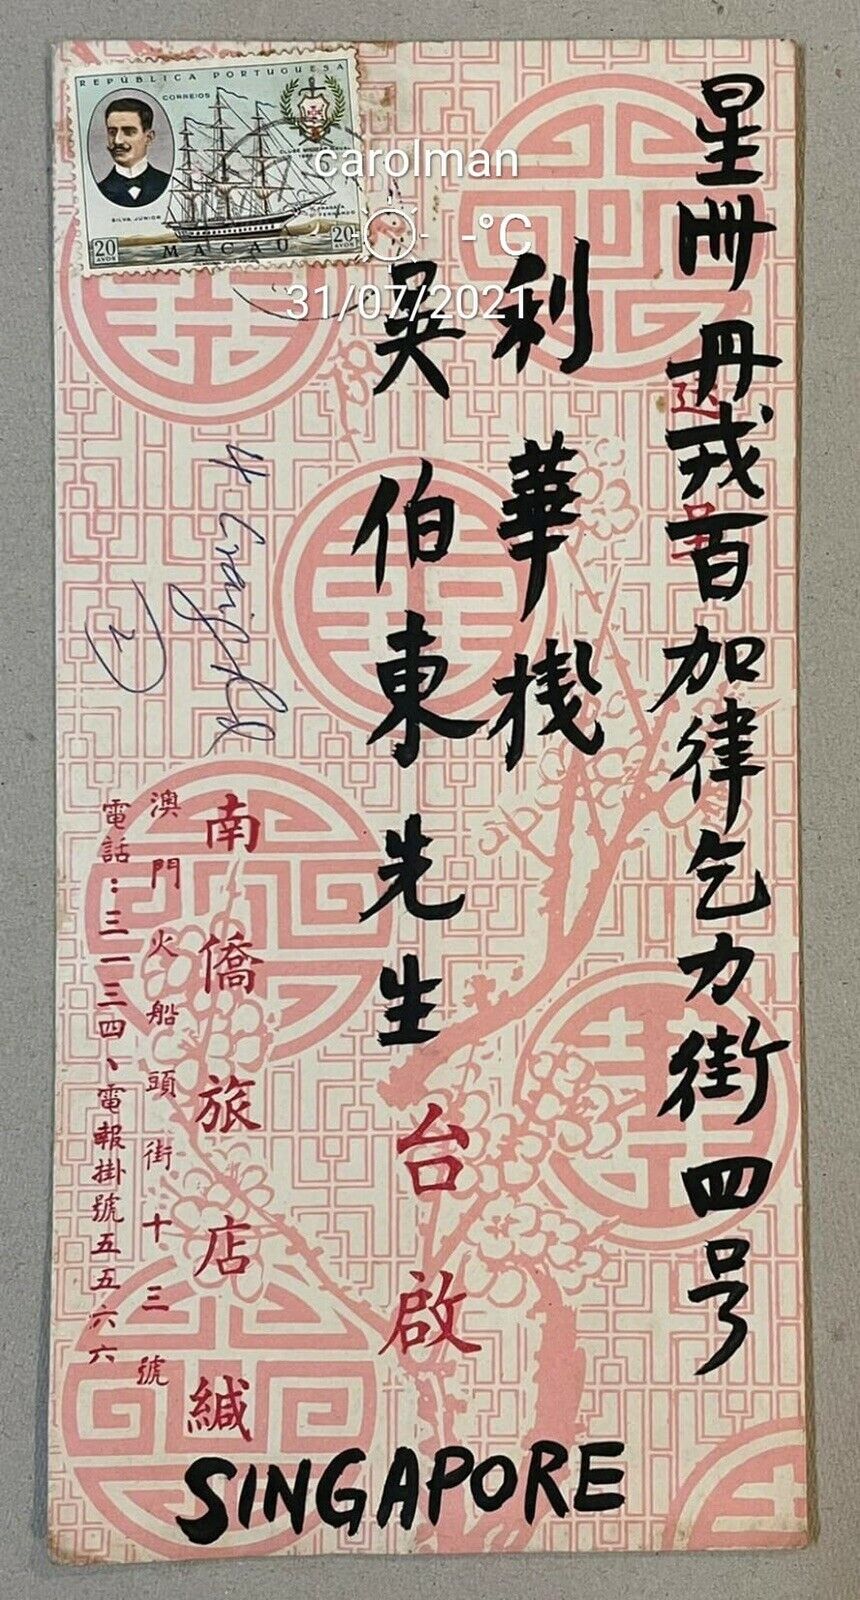 星冊丹戎百加律乞力街四号
送呈
利華棧
吳伯東先生
台啟
南僑旅店緘
澳門火船頭街十三號
電話：三一三四、電報掛號五五六六
SINGAPORE
4 Craig Rd
2
REPÚBLICA PORTUGUESA
CORREIOS
SILVA JÚNIOR
20 AVOS
MACAU
20 AVOS
carolman
-°C
31/07/2021